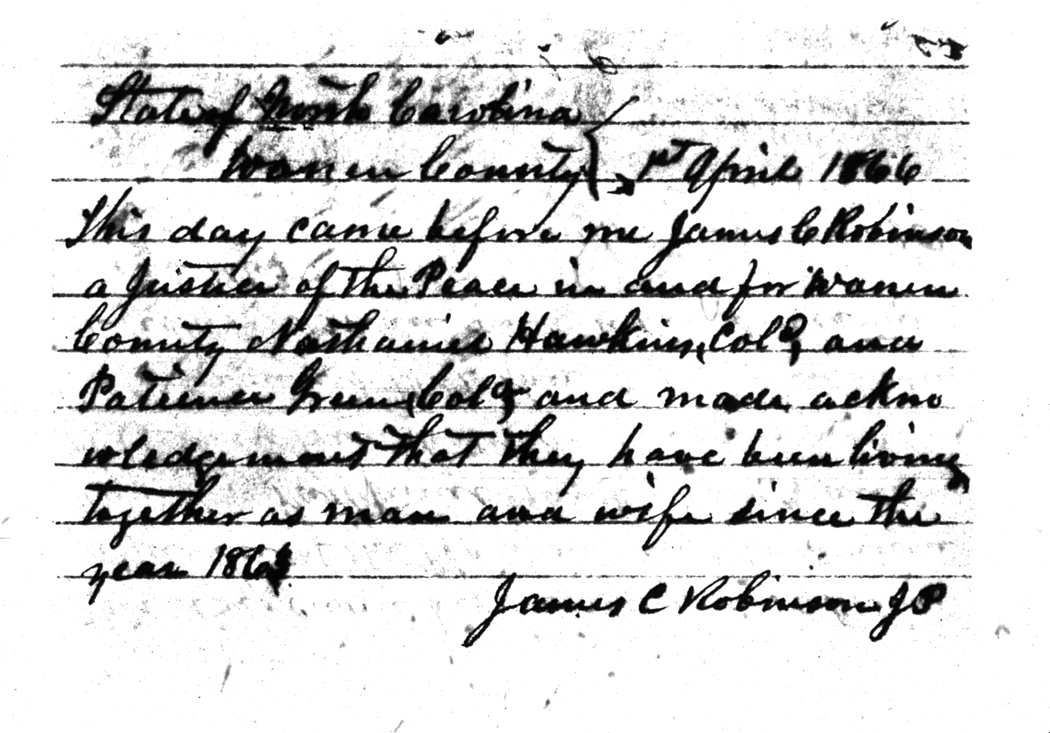 State of North Carolina
Warren County } 1st April 1866
This day came before me James C Robinson
a Justice of the Peace in and for Warren
County Nathaniel Hawkins, Cold, and
Patience Green, Cold, and made ackno
wledgement that they have been living
together as man and wife since the
year
James C Robinson JP